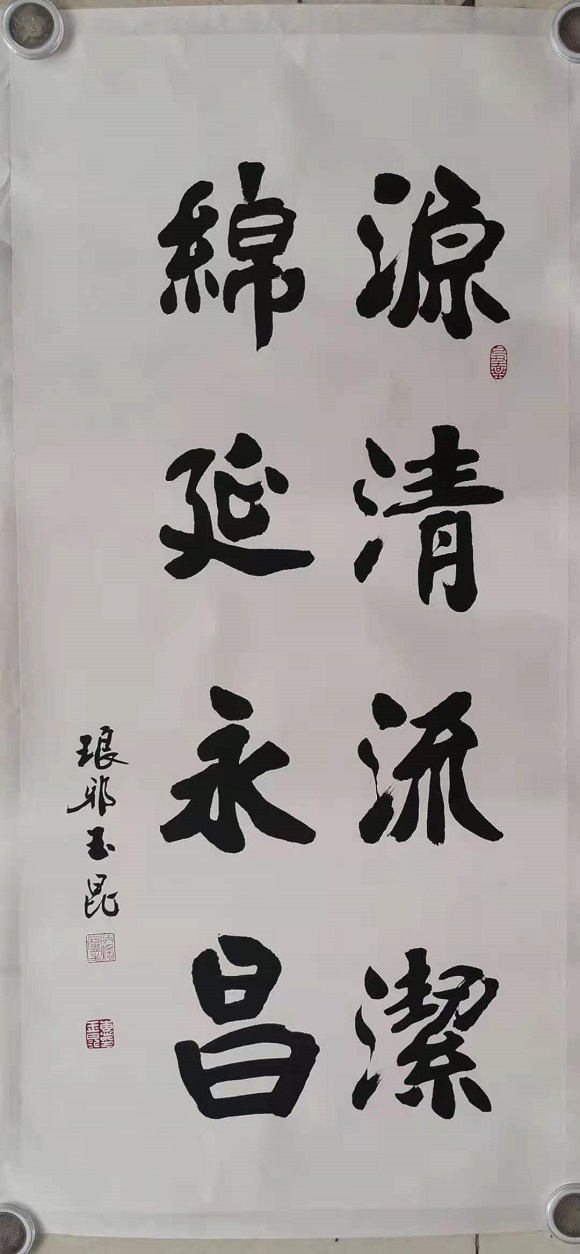 源清流潔
綿延永昌
琅邪玉昆